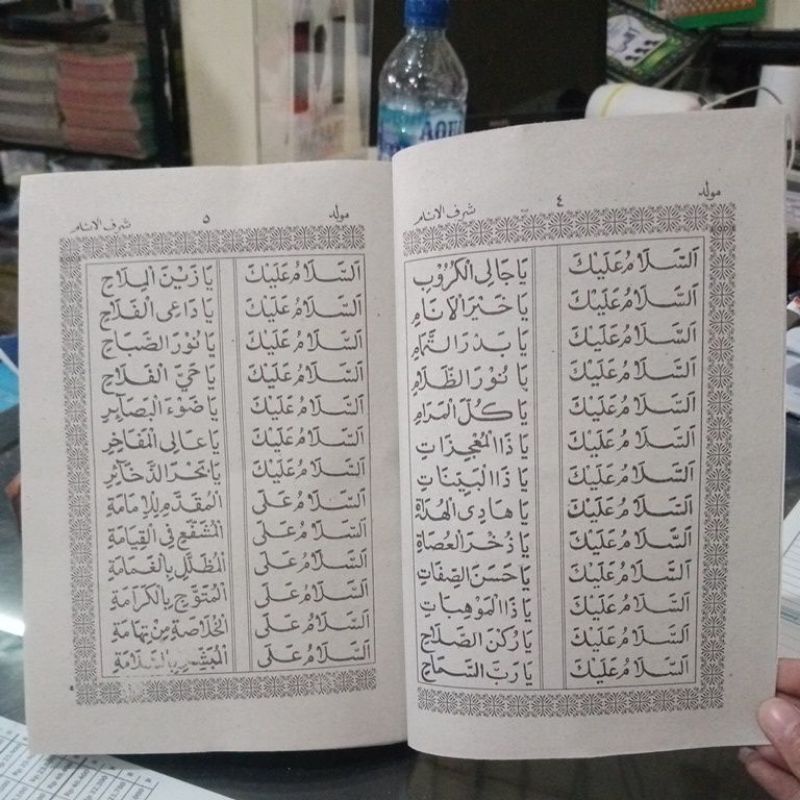 مولد ٤ شرف الانام
اَلسَّلَامُ عَلَيْكَ يَا جَالِى الْكُرُوْبِ
اَلسَّلَامُ عَلَيْكَ يَا خَيْرَ الْاَنَامِ
اَلسَّلَامُ عَلَيْكَ يَا بَدْرَ التَّمَامِ
اَلسَّلَامُ عَلَيْكَ يَا نُوْرَ الظَّلَامِ
اَلسَّلَامُ عَلَيْكَ يَا كُلَّ الْمَرَامِ
اَلسَّلَامُ عَلَيْكَ يَا ذَا الْمُعْجِزَاتِ
اَلسَّلَامُ عَلَيْكَ يَا ذَا الْبَيِّنَاتِ
اَلسَّلَامُ عَلَيْكَ يَا هَادِى الْهُدَاةِ
اَلسَّلَامُ عَلَيْكَ يَا ذُخْرَ الْعُصَاةِ
اَلسَّلَامُ عَلَيْكَ يَا حَسَنَ الصِّفَاتِ
اَلسَّلَامُ عَلَيْكَ يَا ذَا الْمَوْهِبَاتِ
اَلسَّلَامُ عَلَيْكَ يَا رُكْنَ الصَّلَاحِ
اَلسَّلَامُ عَلَيْكَ يَا رَبَّ السَّمَاحِ
مولد ٥ شرف الانام
اَلسَّلَامُ عَلَيْكَ يَا زَيْنَ الْمِلَاحِ
اَلسَّلَامُ عَلَيْكَ يَا دَاعِى الْفَلَاحِ
اَلسَّلَامُ عَلَيْكَ يَا نُوْرَ الصَّبَاحِ
اَلسَّلَامُ عَلَيْكَ يَا حَيَّ الْفَلَاحِ
اَلسَّلَامُ عَلَيْكَ يَا ضَوْءَ الْبَصَآئِرِ
اَلسَّلَامُ عَلَيْكَ يَا عَالِى الْمَفَاخِرِ
اَلسَّلَامُ عَلَيْكَ يَا بَحْرَ الذَّخَآئِرِ
اَلسَّلَامُ عَلَى الْمُقَدَّمِ لِلْاِمَامَةِ
اَلسَّلَامُ عَلَى الْمُشَفَّعِ فِى الْقِيَامَةِ
اَلسَّلَامُ عَلَى الْمُظَلَّلِ بِالْغَمَامَةِ
اَلسَّلَامُ عَلَى الْمُتَوَّجِ بِالْكَرَامَةِ
اَلسَّلَامُ عَلَى الْخُلَاصَةِ مِنْ تِهَامَةِ
اَلسَّلَامُ عَلَى الْمُبَشِّرِ بِالسَّلَامَةِ
AQUA